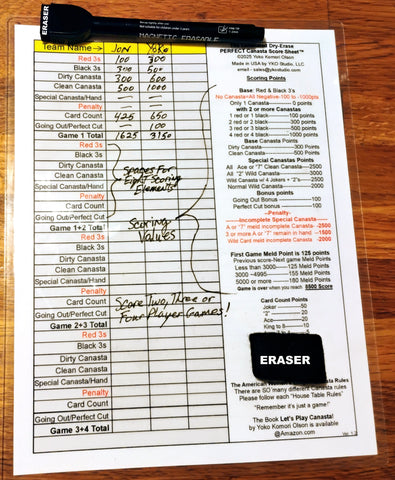 ERASER
MAGNETIC ERASABLE
Team Name → JON YOKO
Red 3's 100 300
Black 3's 300 500
Dirty Canasta 300 600
Clean Canasta 500 1000
Special Canasta/Hand — —
Penalty — —
Card Count 425 650
Going Out/Perfect Cut — 100
Game 1 Total 1625 3150
Red 3's
Black 3's
Dirty Canasta
Clean Canasta
Special Canasta/Hand
Penalty
Card Count
Going Out/Perfect Cut
Game 1+2 Total
Spaces For
Eight Scoring
Elements
Red 3's
Black 3's
Dirty Canasta
Clean Canasta
Special Canasta/Hand
Penalty
Card Count
Going Out/Perfect Cut
Game 2+3 Total
Scoring
Values
Score Two, Three or
Four Player Games!
Red 3's
Black 3's
Dirty Canasta
Clean Canasta
Special Canasta/Hand
Penalty
Card Count
Going Out/Perfect Cut
Game 3+4 Total
Dry-Erase
PERFECT Canasta Score Sheet™
©2025 Yoko Komori Olson
Made in USA by YKO Studio, LLC
email - sales@ykostudio.com
Scoring Points
Base: Red & Black 3's
No Canasta=All Negative-100 to -1000pts
Only 1 Canasta 0 points
1 red or 1 black 100 points
2 red or 2 black 300 points
3 red or 3 black 500 points
4 red or 4 black 1000 points
Base Canasta Points
Dirty Canasta 300 Points
Clean Canasta 500 Points
Special Canastas Points
All Ace or "7" Clean Canasta 2500
All "2" Wild Canasta 3000
Wild Canasta w/ 4 Jokers + "2"s
Normal Wild Canasta 2000
Bonus points
Going Out Bonus 100
Perfect Cut bonus 100
--Penalty-
------Incomplete Special Canasta------
A or "7" meld incomplete Canasta -2500
3 or more A or "7" remain in hand -1500
Wild Card meld incomplete Canasta -2000
First Game Meld Point is 125 points
Previous score-Next game Meld Points
Less than 3000 125 Meld Points
3000 -4995 155 Meld Points
5000 or more 180 Meld Points
Game is over when you reach 8500 Score
Card Count Points
Joker 50
"2" 20
Ace 20
King to 8 10
ERASER
The American Canasta Rules
There are SO many different Canasta rules
Please follow each "House Table Rules"
"Remember it's just a game!"
The Book Let's Play Canasta!
by Yoko Komori Olson is available
@Amazon.com